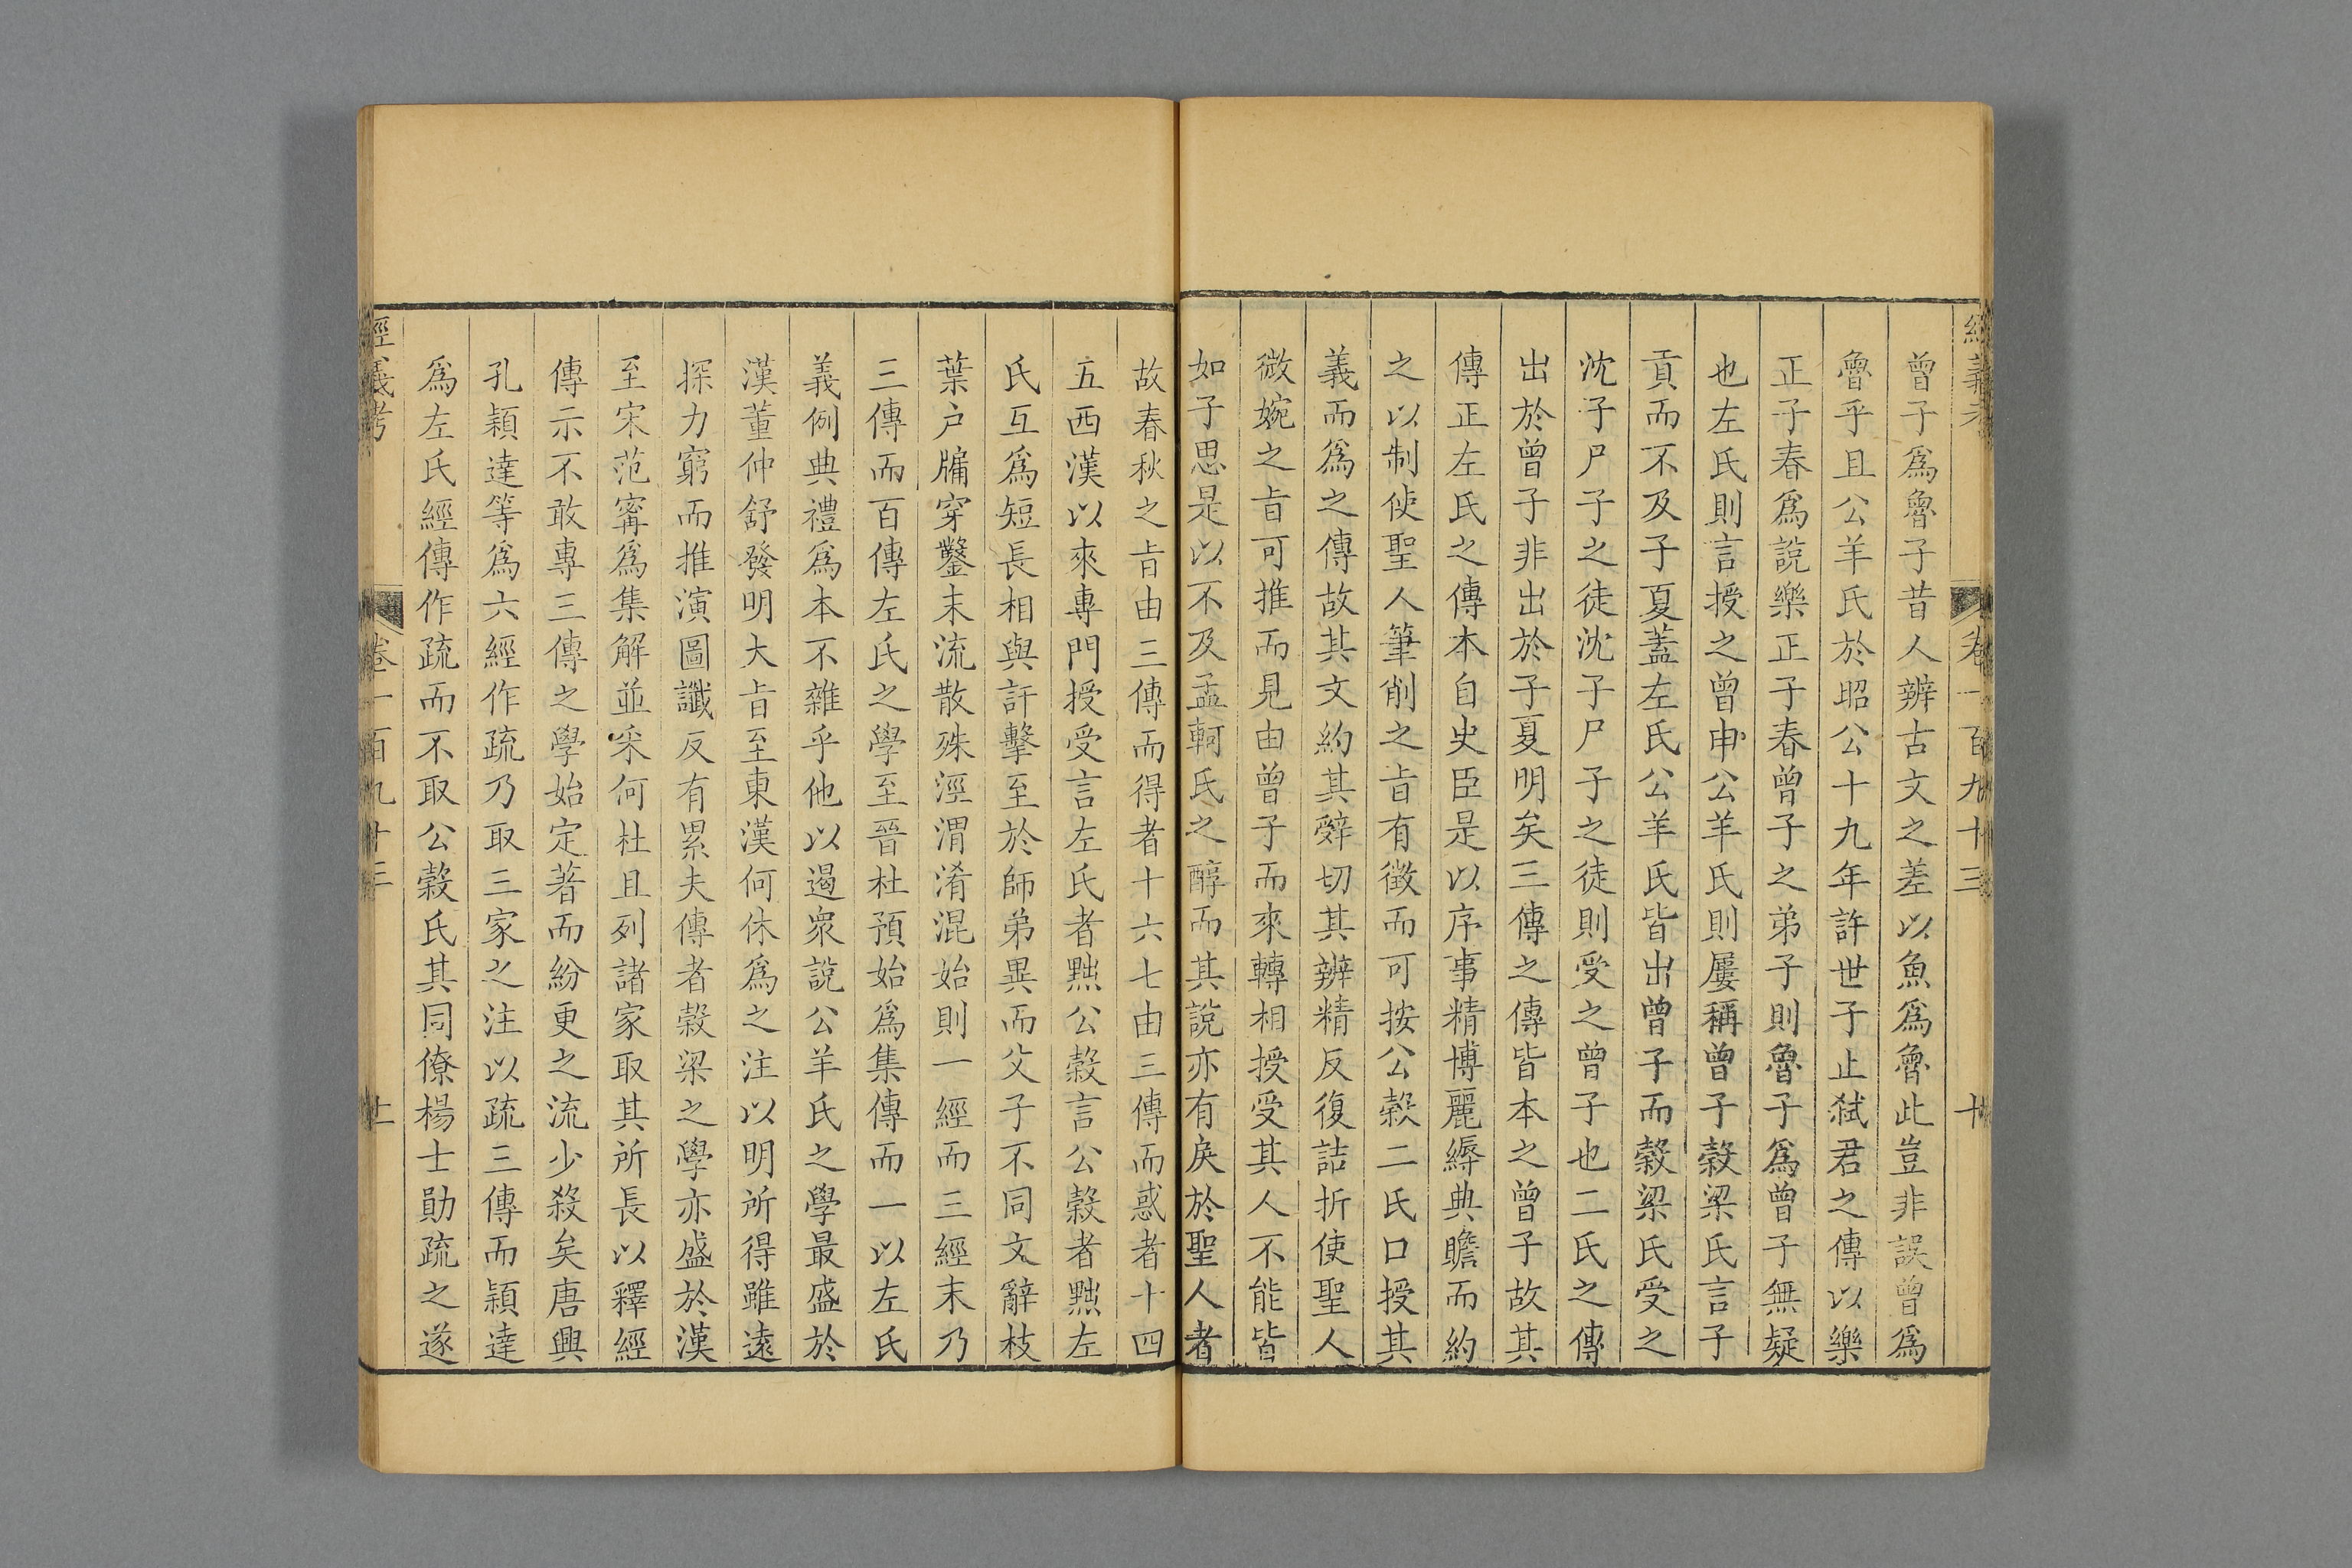 經義考 卷一百九十三 十
曾子爲魯子昔人辨古文之差以魚爲魯此豈非誤曾爲
魯乎且公羊氏於昭公十九年許世子止弑君之傳以樂
正子春爲說樂正子春曾子之弟子則魯子爲曾子無疑
也左氏則言授之曾申公羊氏則屢稱曾子榖梁氏言子
貢而不及子夏蓋左氏公羊氏皆出曾子而榖梁氏受之
沈子尸子之徒沈子尸子之徒則受之曾子也二氏之傳
出於曾子非出於子夏明矣三傳之傳皆本之曾子故其
傳正左氏之傳本自史臣是以序事精博麗縟典瞻而約
之以制使聖人筆削之㫖有徵而可按公榖二氏口授其
義而爲之傳故其文約其辤切其辨精反復詰折使聖人
微婉之㫖可推而見由曾子而來轉相授受其人不能皆
如子思是以不及孟軻氏之醇而其說亦有戾於聖人者
故春秋之㫖由三傳而得者十六七由三傳而惑者十四
五西漢以來專門授受言左氏者黜公榖言公榖者黜左
氏互爲短長相與訐擊至於師弟異而父子不同文辭枝
葉户牖穿鑿末流散殊涇渭淆混始則一經而三經末乃
三傳而百傳左氏之學至晉杜預始爲集傳而一以左氏
義例典禮爲本不雜乎他以遏衆說公羊氏之學最盛於
漢董仲舒發明大㫖至東漢何休爲之注以明所得雖遠
探力窮而推演圖讖反有累夫傳者榖梁之學亦盛於漢
至宋范甯爲集解並采何杜且列諸家取其所長以釋經
傳示不敢專三傳之學始定著而紛更之流少殺矣唐興
孔穎達等爲六經作疏乃取三家之注以疏三傳而穎達
爲左氏經傳作疏而不取公榖氏其同僚楊士勛疏之遂
經義考 卷一百九十三 十一